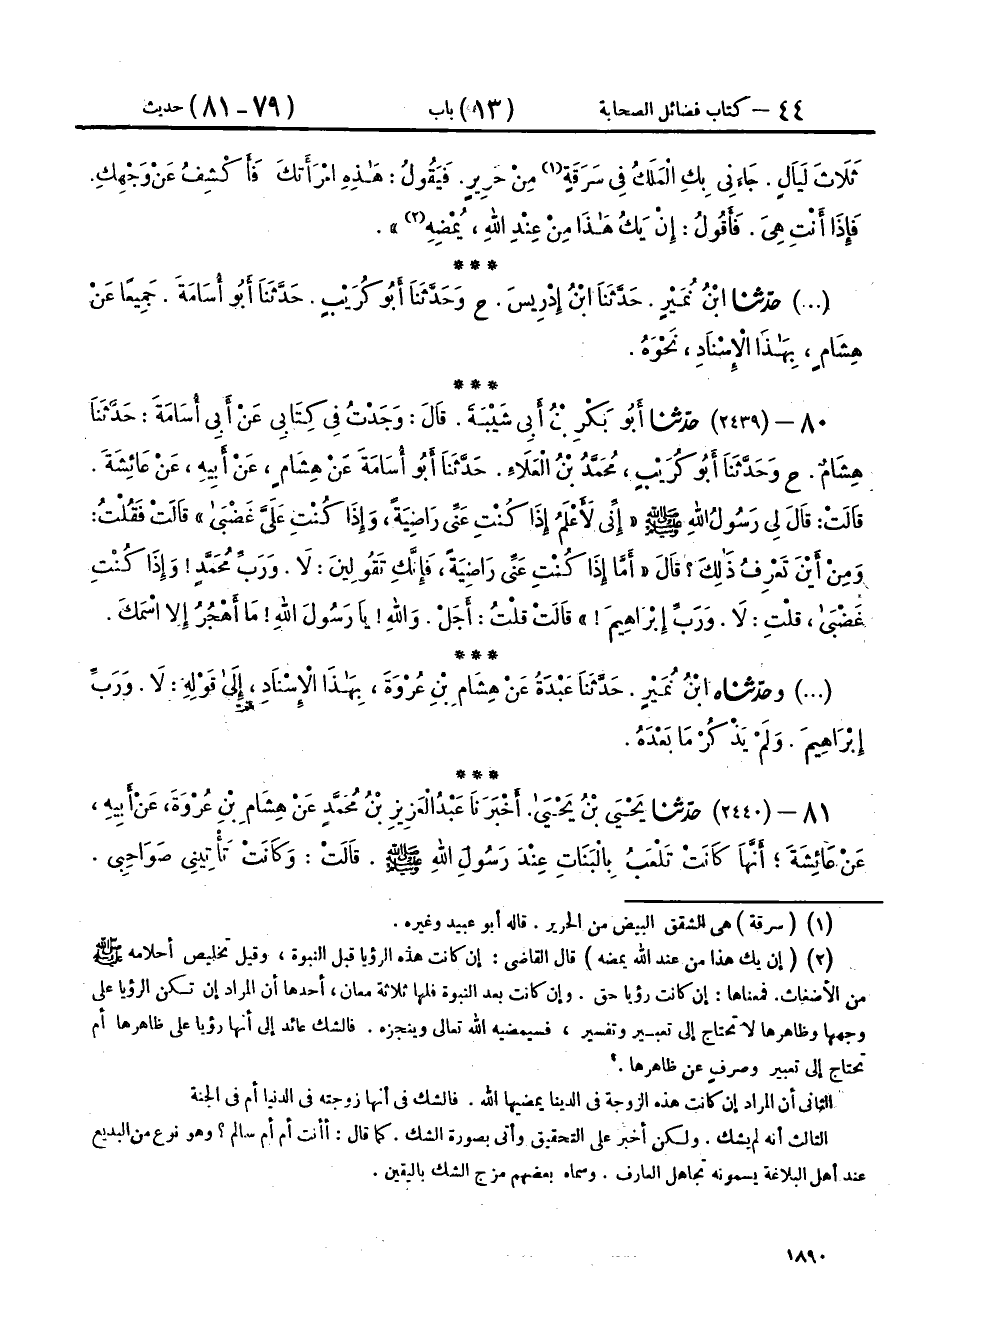 ٤٤ – كتاب فضائل الصحابة (١٣) باب (٧٩ – ٨١) حديث
ثَلَاثَ لَيَالٍ . جَاءَنِي بِكِ الْمَلَكُ فِي سَرَقَةٍ(١) مِنْ حَرِيرٍ. فَيَقُولُ : هَٰذِهِ امْرَأَتُكَ فَأَكْشِفُ عَنْ وَجْهِكِ.
فَإِذَا أَنْتِ هِيَ . فَأَقُولُ : إِنْ يَكُ هَٰذَا مِنْ عِنْدِ اللهِ ، يُمْضِهِ(٢) » .
***
(...) حدّثنا ابْنُ نُمَيْرٍ . حَدَّثَنَا ابْنُ إِدْرِيسَ . ح وَحَدَّثَنَا أَبُو كُرَيْبٍ . حَدَّثَنَا أَبُو أُسَامَةَ . جَمِيعًا عَنْ
هِشَامٍ ، بِهَٰذَا الْإِسْنَادِ ، نَحْوَهُ .
***
٨٠ – (٢٤٣٩) حدّثنا أَبُو بَكْرِ بْنُ أَبِي شَيْبَةَ . قَالَ : وَجَدْتُ فِي كِتَابِي عَنْ أَبِي أُسَامَةَ : حَدَّثَنَا
هِشَامٌ . ح وَحَدَّثَنَا أَبُو كُرَيْبٍ ، مُحَمَّدُ بْنُ الْعَلَاءِ . حَدَّثَنَا أَبُو أُسَامَةَ عَنْ هِشَامٍ ، عَنْ أَبِيهِ ، عَنْ عَائِشَةَ .
قَالَتْ: قَالَ لِي رَسُولُ اللهِ ﷺ « إِنِّي لَأَعْلَمُ إِذَا كُنْتِ عَنِّي رَاضِيَةً ، وَإِذَا كُنْتِ عَلَيَّ غَضْبَىٰ » قَالَتْ فَقُلْتُ:
وَمِنْ أَيْنَ تَعْرِفُ ذَٰلِكَ ؟ قَالَ « أَمَّا إِذَا كُنْتِ عَنِّي رَاضِيَةً ، فَإِنَّكِ تَقُولِينَ : لَا . وَرَبِّ مُحَمَّدٍ ! وَإِذَا كُنْتِ
غَضْبَىٰ ، قُلْتِ : لَا . وَرَبِّ إِبْرَاهِيمَ ! » قَالَتْ قُلْتُ : أَجَلْ . وَاللهِ ! يَا رَسُولَ اللهِ ! مَا أَهْجُرُ إِلَّا اسْمَكَ .
***
(...) وحدّثناه ابْنُ نُمَيْرٍ . حَدَّثَنَا عَبْدَةُ عَنْ هِشَامِ بْنِ عُرْوَةَ ، بِهَٰذَا الْإِسْنَادِ ، إِلَىٰ قَوْلِهِ : لَا . وَرَبِّ
إِبْرَاهِيمَ . وَلَمْ يَذْكُرْ مَا بَعْدَهُ .
***
٨١ – (٢٤٤٠) حدّثنا يَحْيَىٰ بْنُ يَحْيَىٰ. أَخْبَرَنَا عَبْدُالْعَزِيزِ بْنُ مُحَمَّدٍ عَنْ هِشَامِ بْنِ عُرْوَةَ، عَنْ أَبِيهِ ،
عَنْ عَائِشَةَ ؛ أَنَّهَا كَانَتْ تَلْعَبُ بِالْبَنَاتِ عِنْدَ رَسُولِ اللهِ ﷺ . قَالَتْ : وَكَانَتْ تَأْتِينِي صَوَاحِبِي .
(١) ( سرقة ) هى الشقق البيض من الحرير . قاله أبو عبيد وغيره .
(٢) ( إن يك هذا من عند الله يمضه ) قال القاضى : إن كانت هذه الرؤيا قبل النبوة ، وقبل تخليص أحلامه ﷺ
من الأضغاث. فمعناها : إن كانت رؤيا حق . وإن كانت بعد النبوة فلها ثلاثة معان ، أحدها أن المراد إن تكن الرؤيا على
وجهها وظاهرها لا تحتاج إلى تعبير وتفسير ، فسيمضيه الله تعالى وينجزه . فالشك عائد إلى أنها رؤيا على ظاهرها أم
تحتاج إلى تعبير وصرف عن ظاهرها .
الثانى أن المراد إن كانت هذه الزوجة فى الدينا يمضيها الله . فالشك فى أنها زوجته فى الدنيا أم فى الجنة
الثالث أنه لم يشك . ولكن أخبر على التحقيق وأتى بصورة الشك . كما قال : أأنت أم أم سالم ؟ وهو نوع من البديع
عند أهل البلاغة يسمونه تجاهل العارف . وسماه بعضهم مزج الشك باليقين .
١٨٩٠